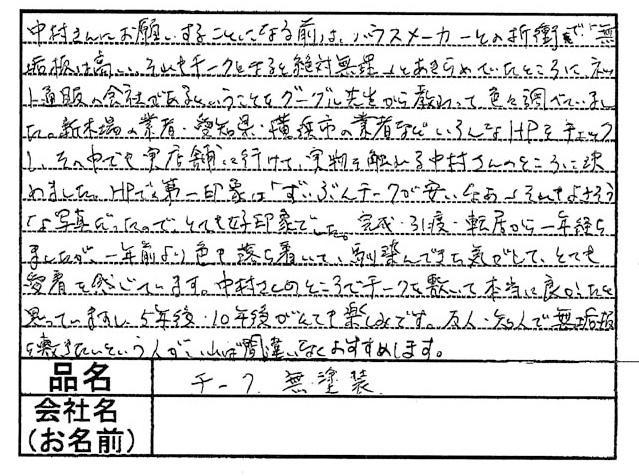 中村さんにお願いすることになる前は、ハウスメーカーとの折衝で「無
垢板は高い。それもチークとすると絶対無理」とあきらめていたところに、ネッ
ト通販の会社であるということをグーグル先生から教わって色々調べていまし
た。新木場の業者・愛知県・横浜市の業者などいろんなHPをチェック
し、その中でも実店舗に行けて、実物を触れる中村さんのところに決
めました。HPでの第一印象は「ずいぶんチークが安いなあ」それもよさそう
な写真だったので、とても好印象でした。完成・引渡・転居から一年経ち
ましたが、一年前より色も落ち着いて、馴染んできた気がして、とても
愛着を感じています。中村さんのところでチークを敷いて本当に良かったと
思っていますし、5年後・10年後がとても楽しみです。友人・知人で無垢板
を敷きたいという人がいれば間違いなくおすすめします。
品名 チーク 無塗装
会社名
(お名前)